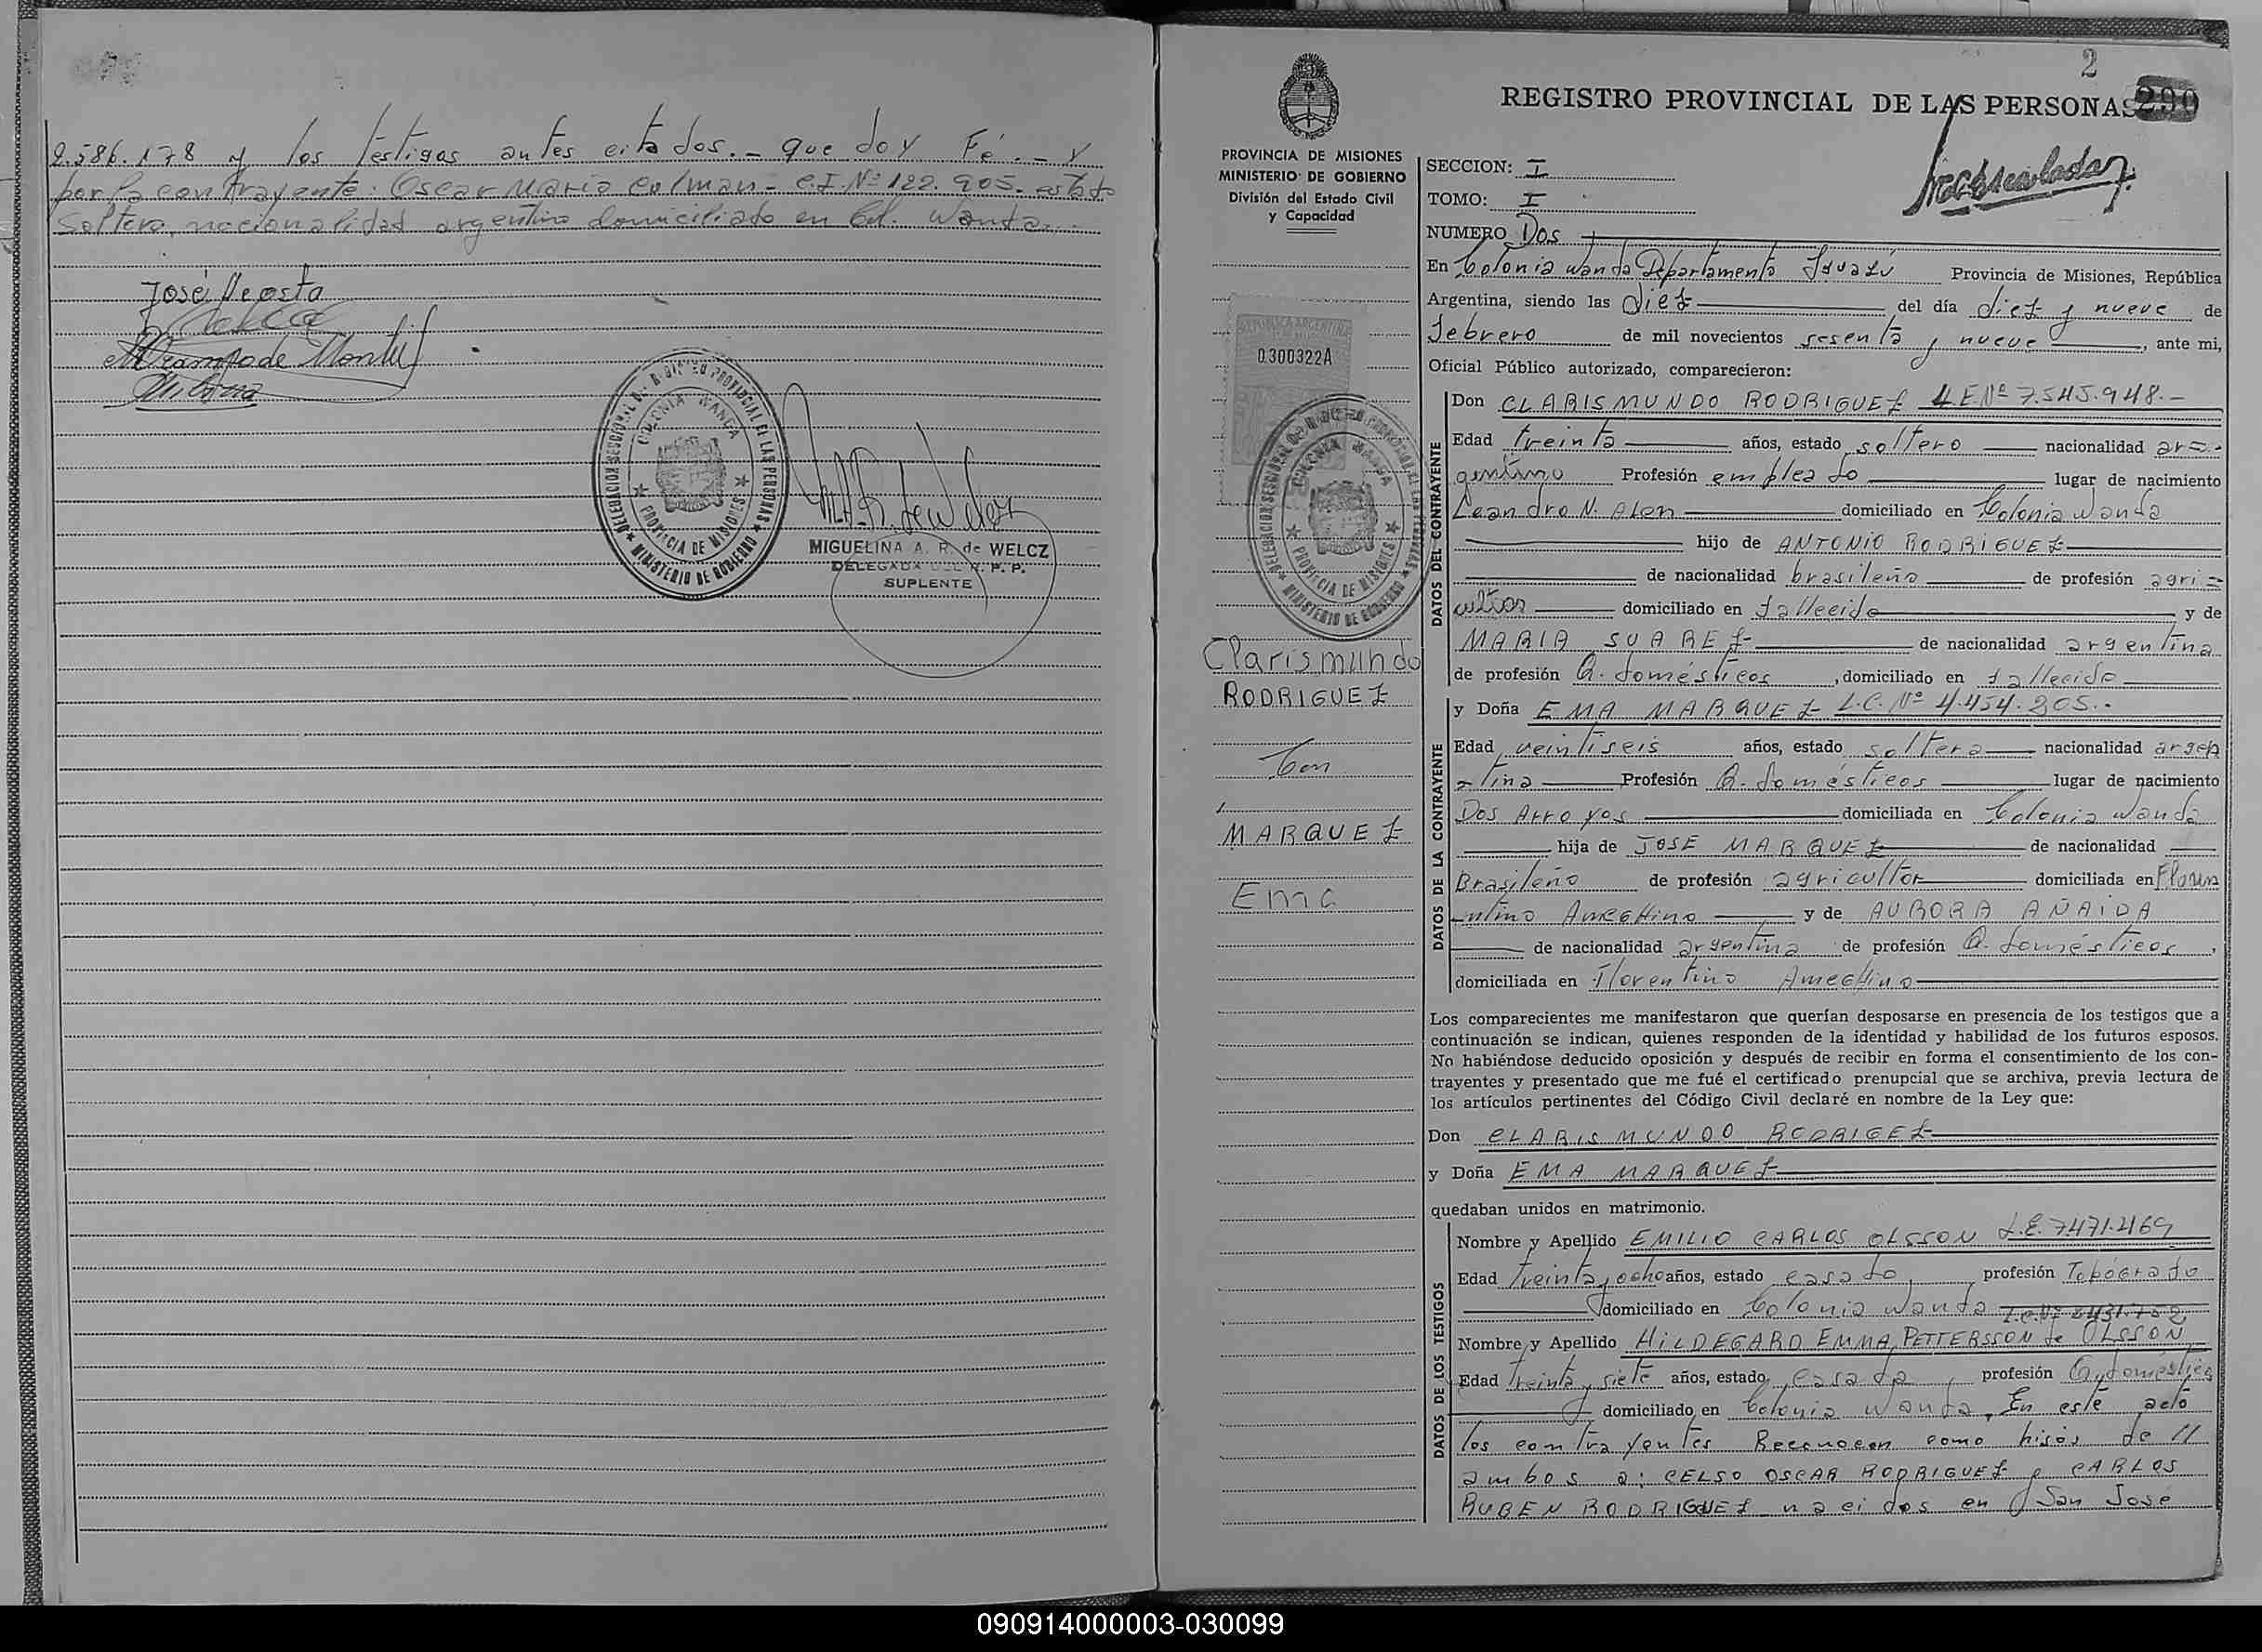 2.586.178 y los testigos antes citados.- que doy Fé.- y
por la contrayente: Oscar Mario Colman - C.I. Nº 122.905. estado
soltero, nacionalidad argentino domiciliado en Col. Wanda...
José Acosta
M. Ocampo de Montiel
DELEGACION SECCIONAL DEL REGISTRO PROVINCIAL DE LAS PERSONAS
COLONIA WANDA
PROVINCIA DE MISIONES
MINISTERIO DE GOBIERNO
MIGUELINA A. R. de WELCZ
DELEGADA DEL R. P. P.
SUPLENTE
2
REGISTRO PROVINCIAL DE LAS PERSONAS
290
PROVINCIA DE MISIONES
MINISTERIO DE GOBIERNO
División del Estado Civil
y Capacidad
REPUBLICA ARGENTINA
0.300322A
DELEGACION SECCIONAL DEL REGISTRO PROVINCIAL DE LAS PERSONAS
COLONIA WANDA
PROVINCIA DE MISIONES
MINISTERIO DE GOBIERNO
Clarismundo
RODRIGUEZ
Con
MARQUEZ
Ema
SECCION: I
TOMO: I
NUMERO Dos
En Colonia Wanda Departamento Iguazú Provincia de Misiones, República
Argentina, siendo las diez del día diez y nueve de
febrero de mil novecientos sesenta y nueve, ante mi,
Oficial Público autorizado, comparecieron:
DATOS DEL CONTRAYENTE
Don CLARISMUNDO RODRIGUEZ L.E Nº 7.545.948.-
Edad treinta años, estado soltero nacionalidad ar=
gentino Profesión empleado lugar de nacimiento
Leandro N. Alen domiciliado en Colonia Wanda
hijo de ANTONIO RODRIGUEZ
de nacionalidad brasileño de profesión agri=
cultor domiciliado en fallecido y de
MARIA SUAREZ de nacionalidad argentina
de profesión Q. domésticos, domiciliado en fallecida
DATOS DE LA CONTRAYENTE
y Doña EMA MARQUEZ L.C. Nº 4.454.205..
Edad veintiseis años, estado soltera nacionalidad argen
tina Profesión Q. domésticos lugar de nacimiento
Dos Arroyos domiciliada en Colonia Wanda
hija de JOSE MARQUEZ de nacionalidad
Brasileño de profesión agricultor domiciliada en Floren
ntino Ameghino y de AURORA AÑAIDA
de nacionalidad argentina de profesión Q. domésticos,
domiciliada en Florentino Ameghino
Los comparecientes me manifestaron que querían desposarse en presencia de los testigos que a
continuación se indican, quienes responden de la identidad y habilidad de los futuros esposos.
No habiéndose deducido oposición y después de recibir en forma el consentimiento de los con-
trayentes y presentado que me fué el certificado prenupcial que se archiva, previa lectura de
los artículos pertinentes del Código Civil declaré en nombre de la Ley que:
Don CLARISMUNDO RODRIGEZ
y Doña EMA MARQUEZ
quedaban unidos en matrimonio.
DATOS DE LOS TESTIGOS
Nombre y Apellido EMILIO CARLOS OLSSON L.E. 7.471.469
Edad treinta y ocho años, estado casado, profesión Topógrafo
domiciliado en Colonia Wanda L.C. Nº 3431.752
Nombre y Apellido HILDEGARD EMMA PETTERSSON de OLSSON
Edad treinta y siete años, estado casada, profesión Q. domésticos
domiciliado en Colonia Wanda. En este acto
los contrayentes Reconocen como hijos de //
ambos a: CELSO OSCAR RODRIGUEZ y CARLOS
RUBEN RODRIGUEZ nacidos en San José
090914000003-030099